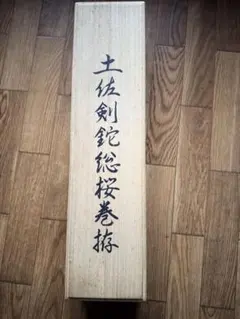 土佐剣鉈総桜巻拵